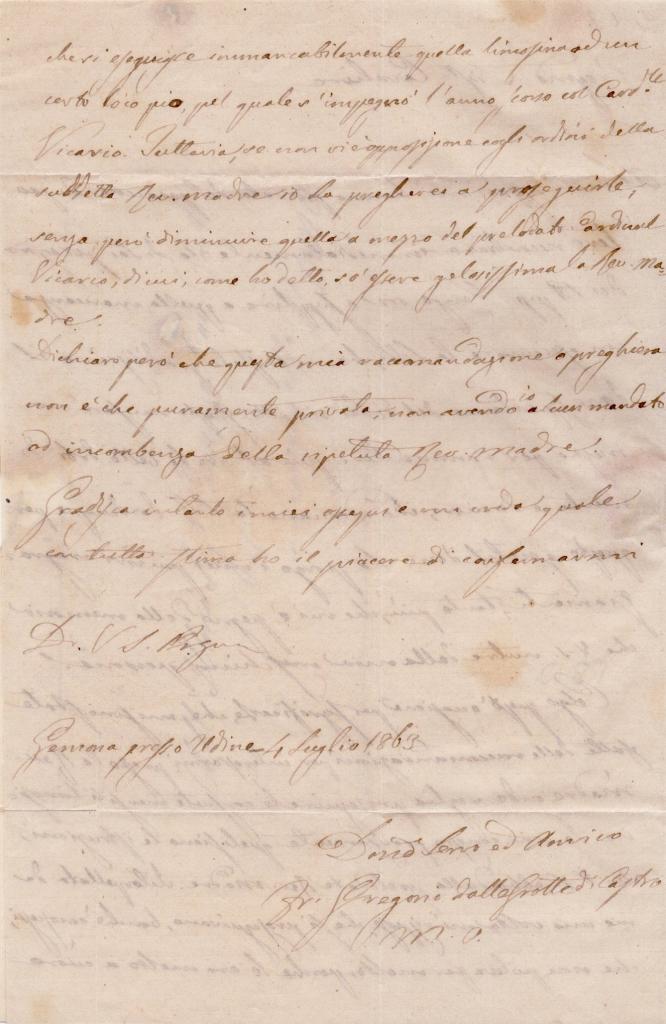 che si eseguisse immancabilmente quella limosina ad un
certo loco pio, pel quale s'impegnò l'anno scorso col Card.le
Vicario. Tuttavia, se non vi è opposizione cogli ordini della
suddetta Rev. Madre io la pregherei a proseguirle,
senza però diminuire quella a mezzo del prelodato Cardinal
Vicario, di cui, come ho detto, so essere gelosissima la Rev. Ma-
dre.
Dichiaro però che questa mia raccomandazione o preghiera
non è che puramente privata, non avendo io alcun mandato
od incombenza della ripetuta Rev. Madre.
Gradisca intanto i miei ossequi e mi creda quale
con tutta stima ho il piacere di confermarmi
Di V S
Gemona presso Udine 4 Luglio 1863
Servo ed Amico
Fr. Gregorio dalle Grotte di Castro
M. O.